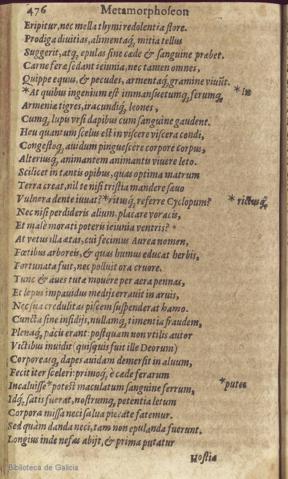 476 Metamorphoseon
Eripitur, nec mella thymi redolentia flore.
Prodiga diuitias, alimentaq́, mitia tellus
Suggerit, atq́, epulas sine cæde & sanguine præbet.
Carne feræ sedant ieiunia, nec tamen omnes,
Quippe equus, & pecudes, armentaq́, gramine viuūt.
*At quibus ingenium est immansuetumq́, ferumq́,
Armeniæ tigres, iracundiq́, leones,
Cumq́, lupis vrsi dapibus cum sanguine gaudent.
Heu quantum scelus est in viscere viscera condi,
Congestoq́, auidum pinguescere corpore corpus,
Alteriusq́, animantem animantis viuere leto.
Scilicet in tantis opibus, quas optima matrum
Terra creat, nil te nisi tristia mandere sæuo
Vulnera dente iuuat? *rituq́, referre Cyclopum? *rictuq́,
Nec nisi perdideris alium, placare voracis,
Et male morati poteris ieiunia ventris?
At vetus illa ætas, cui fecimus Aurea nomen,
Fœtibus arboreis, & quas humus educat herbis,
Fortunata fuit, nec polluit ora cruore.
Tunc & aues tutæ mouere per aera pennas,
Et lepus impauidus medijs errauit in aruis,
Nec sua credulitas piscem suspenderat hamo.
Cuncta sine insidijs, nullamq́, timentia fraudem,
Plenaq́, pacis erant: postquam non vtilis autor
Victibus inuidit (quisquis fuit ille Deorum)
Corporeasq́, dapes auidam demersit in aluum,
Fecit iter sceleri: primoq́, è cæde ferarum
Incaluisse *potest maculatum sanguine ferrum, *putes
Idq́, satis fuerat, nostrumq́, petentia letum
Corpora missa neci salua pietate fatemur.
Sed quàm danda neci, tam non epulanda fuerunt.
Longius inde nefas abijt, & prima putatur
Hostia
Biblioteca de Galicia